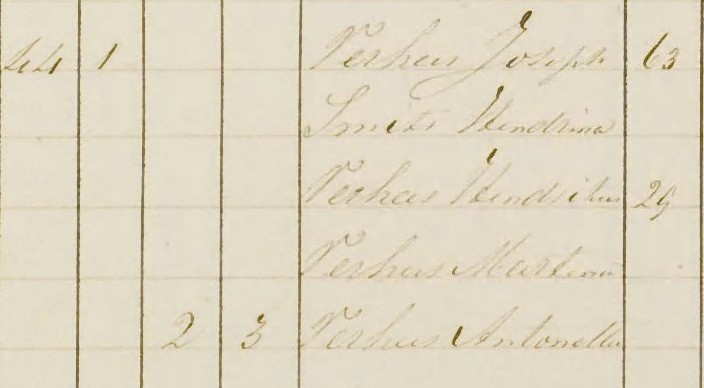 44 1 Verhus Joseph 63
Smits Hendrina
Verhus Hendrikus 29
Verhus Martinus
2 3 Verhus Antonetta